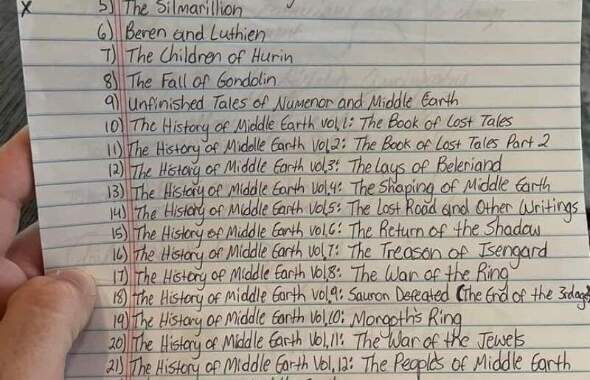 x 5) The Silmarillion
6) Beren and Luthien
7) The Children of Hurin
8) The Fall of Gondolin
9) Unfinished Tales of Numenor and Middle Earth
10) The History of Middle Earth Vol,1: The Book of Lost Tales
11) The History of Middle Earth Vol,2: The Book of Lost Tales Part 2
12) The History of Middle Earth Vol,3: The Lays of Beleriand
13) The History of Middle Earth Vol,4: The Shaping of Middle Earth
14) The History of Middle Earth Vol,5: The Lost Road and Other Writings
15) The History of Middle Earth Vol,6: The Return of the Shadow
16) The History of Middle Earth Vol,7: The Treason of Isengard
17) The History of Middle Earth Vol,8: The War of the Ring
18) The History of Middle Earth Vol,9: Sauron Defeated (The End of the 3rd age
19) The History of Middle Earth Vol,10: Morgoth's Ring
20) The History of Middle Earth Vol,11: The War of the Jewels
21) The History of Middle Earth Vol,12: The Peoples of Middle Earth